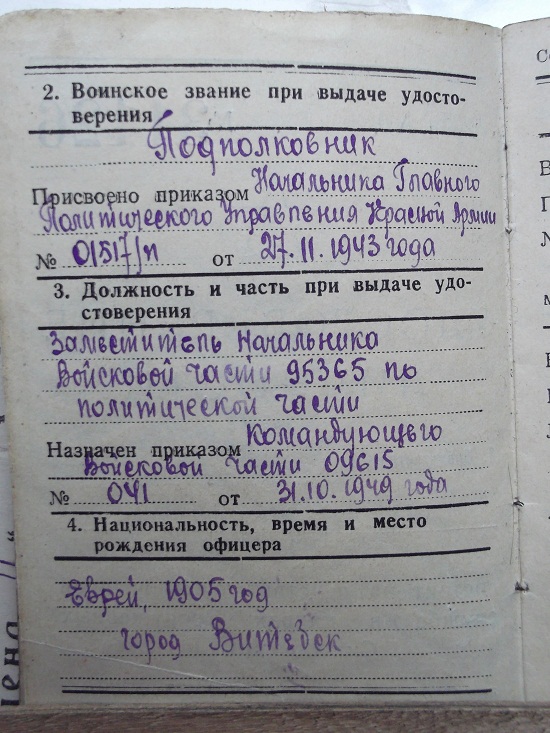 2. Воинское звание при выдаче удосто-
верения
Подполковник
Присвоено приказом Начальника Главного
Политического Управления Красной Армии
№ 01517/п от 27.11.1943 года
3. Должность и часть при выдаче удо-
стоверения
Заместитель Начальника
Войсковой части 95365 по
политической части
Назначен приказом Командующего
Войсковой части 09615
№ 041 от 31.10.1949 года
4. Национальность, время и место
рождения офицера
Еврей, 1905 год
город Витебск